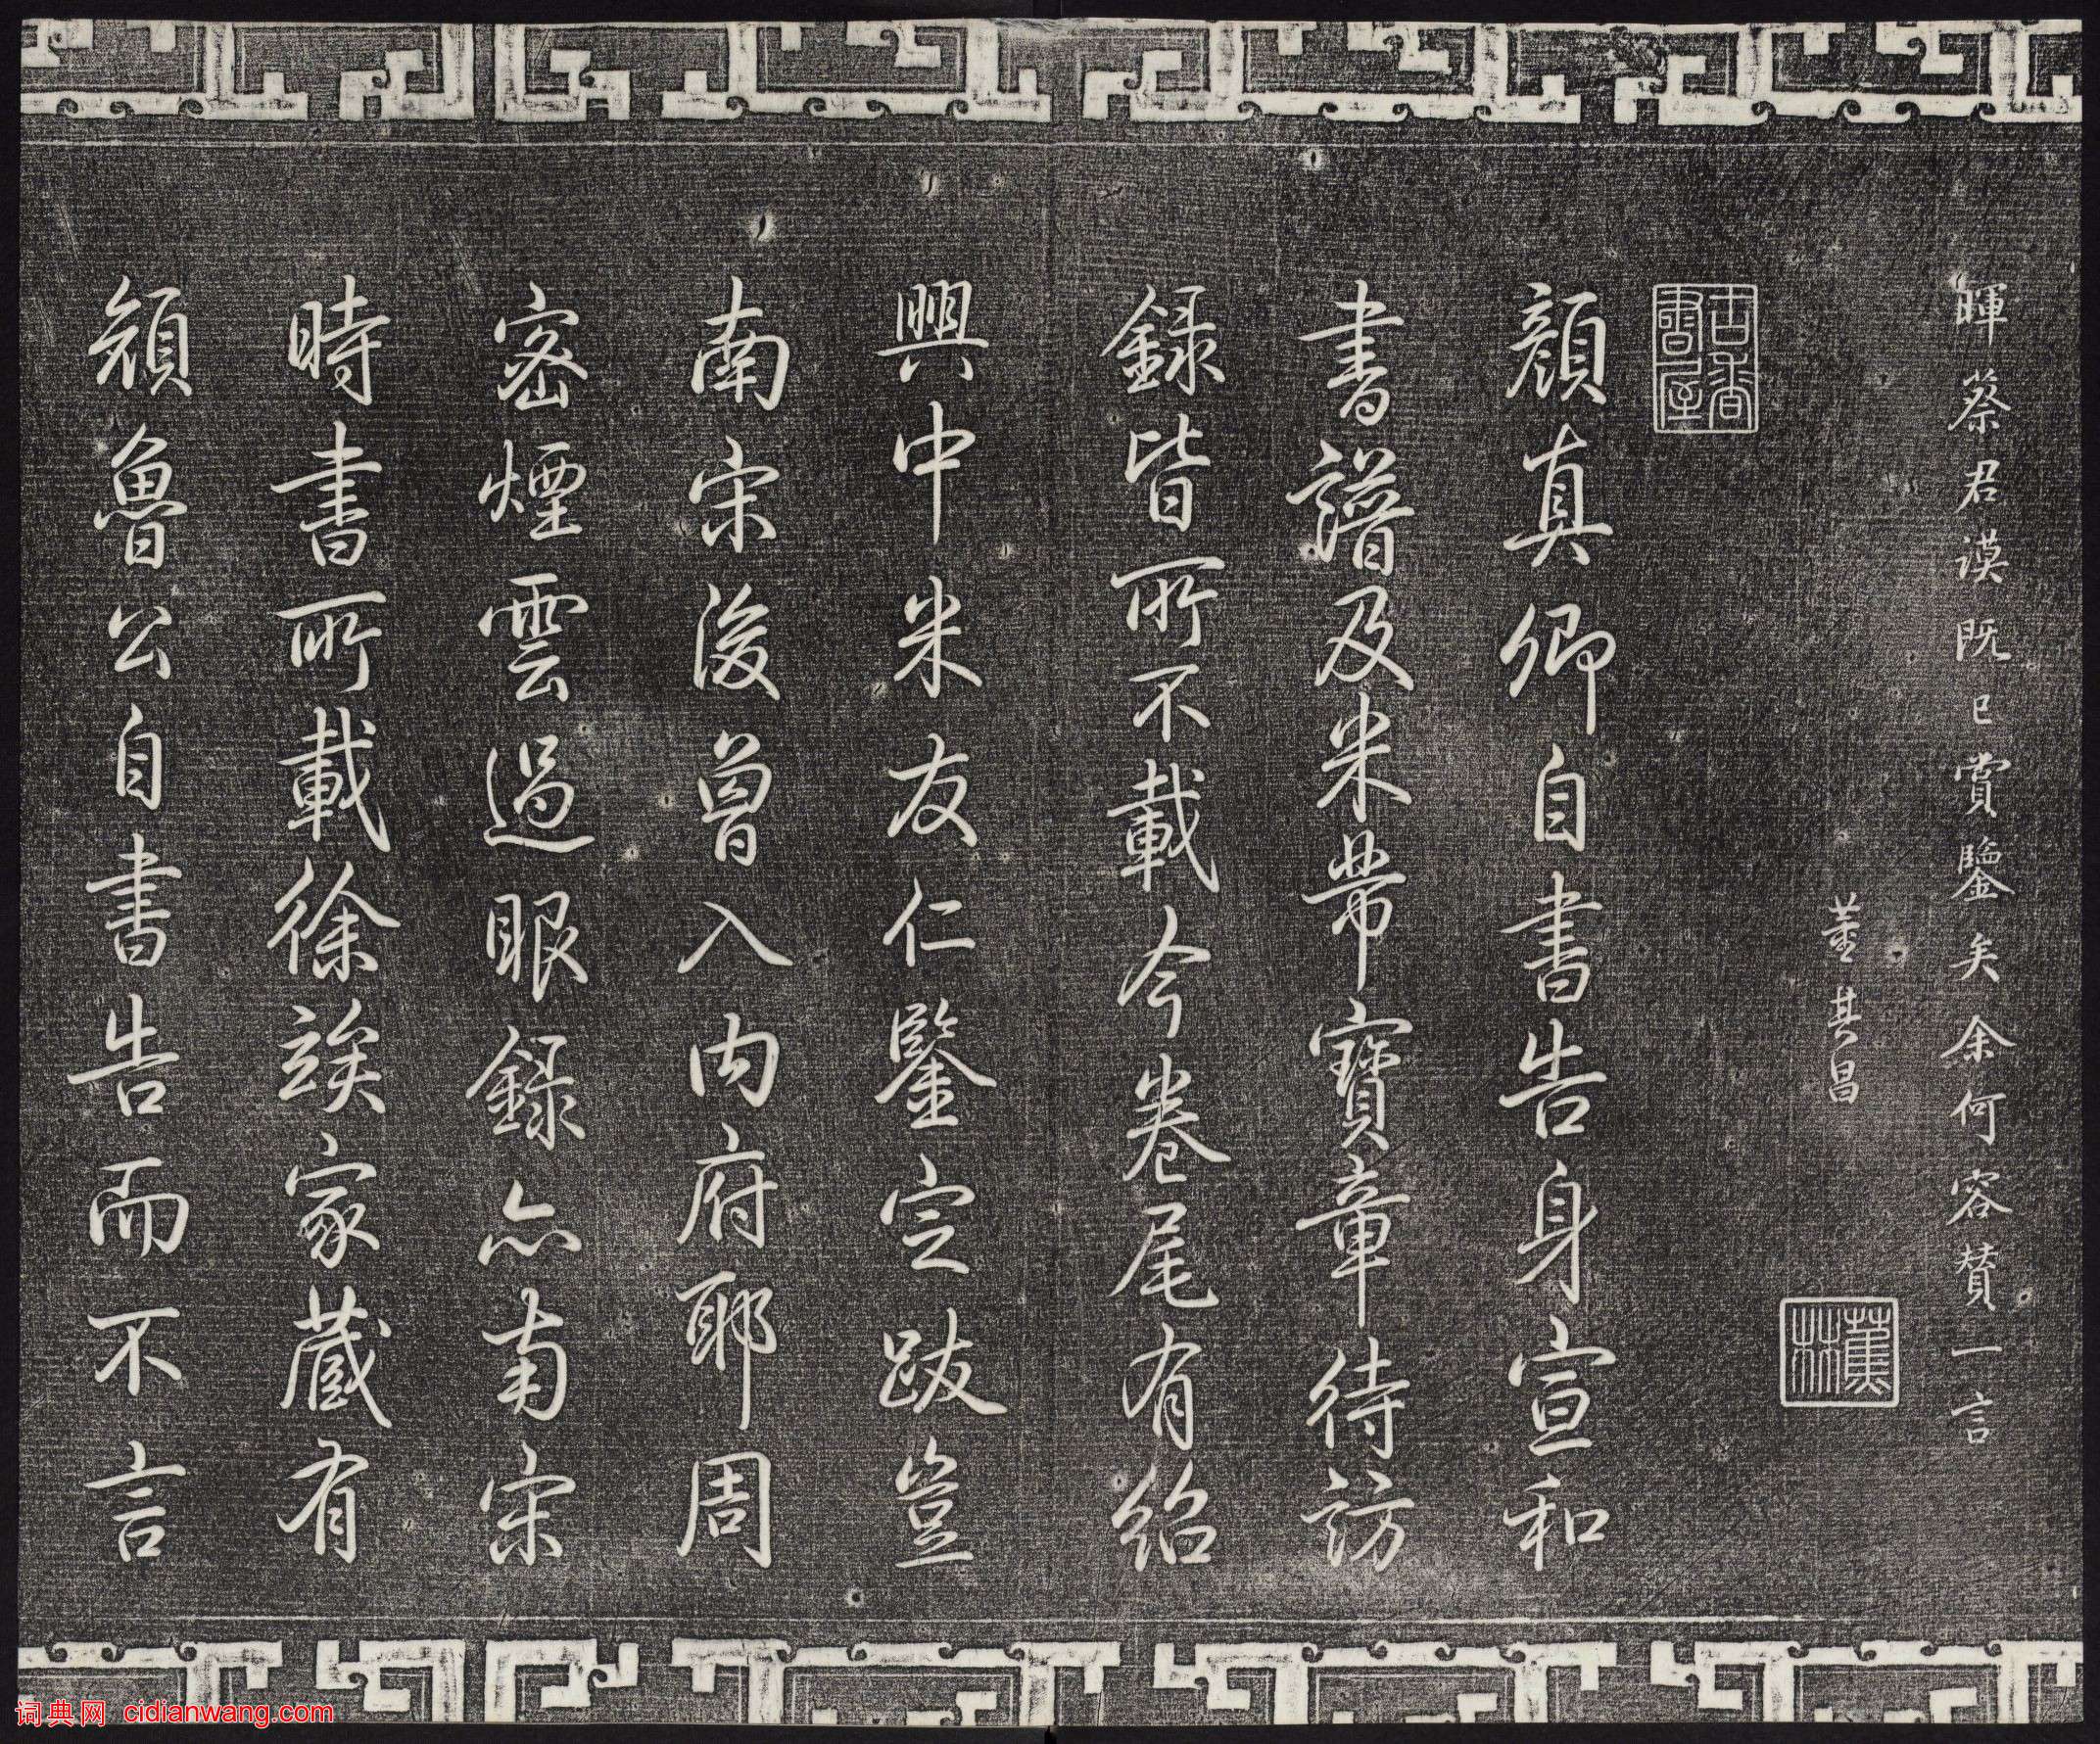 暉蔡君謨既已賞鑒矣余何容賛一言
董其昌
蕉林
古香書屋
顏真卿自書告身宣和
書譜及米芾寶章待訪
録皆所不載今卷尾有紹
興中米友仁鑒定跋豈
南宋後曾入内府耶周
密煙雲過眼録亦南宋
時書所載徐竢家藏有
顏魯公自書告而不言
词典网 cidianwang.com